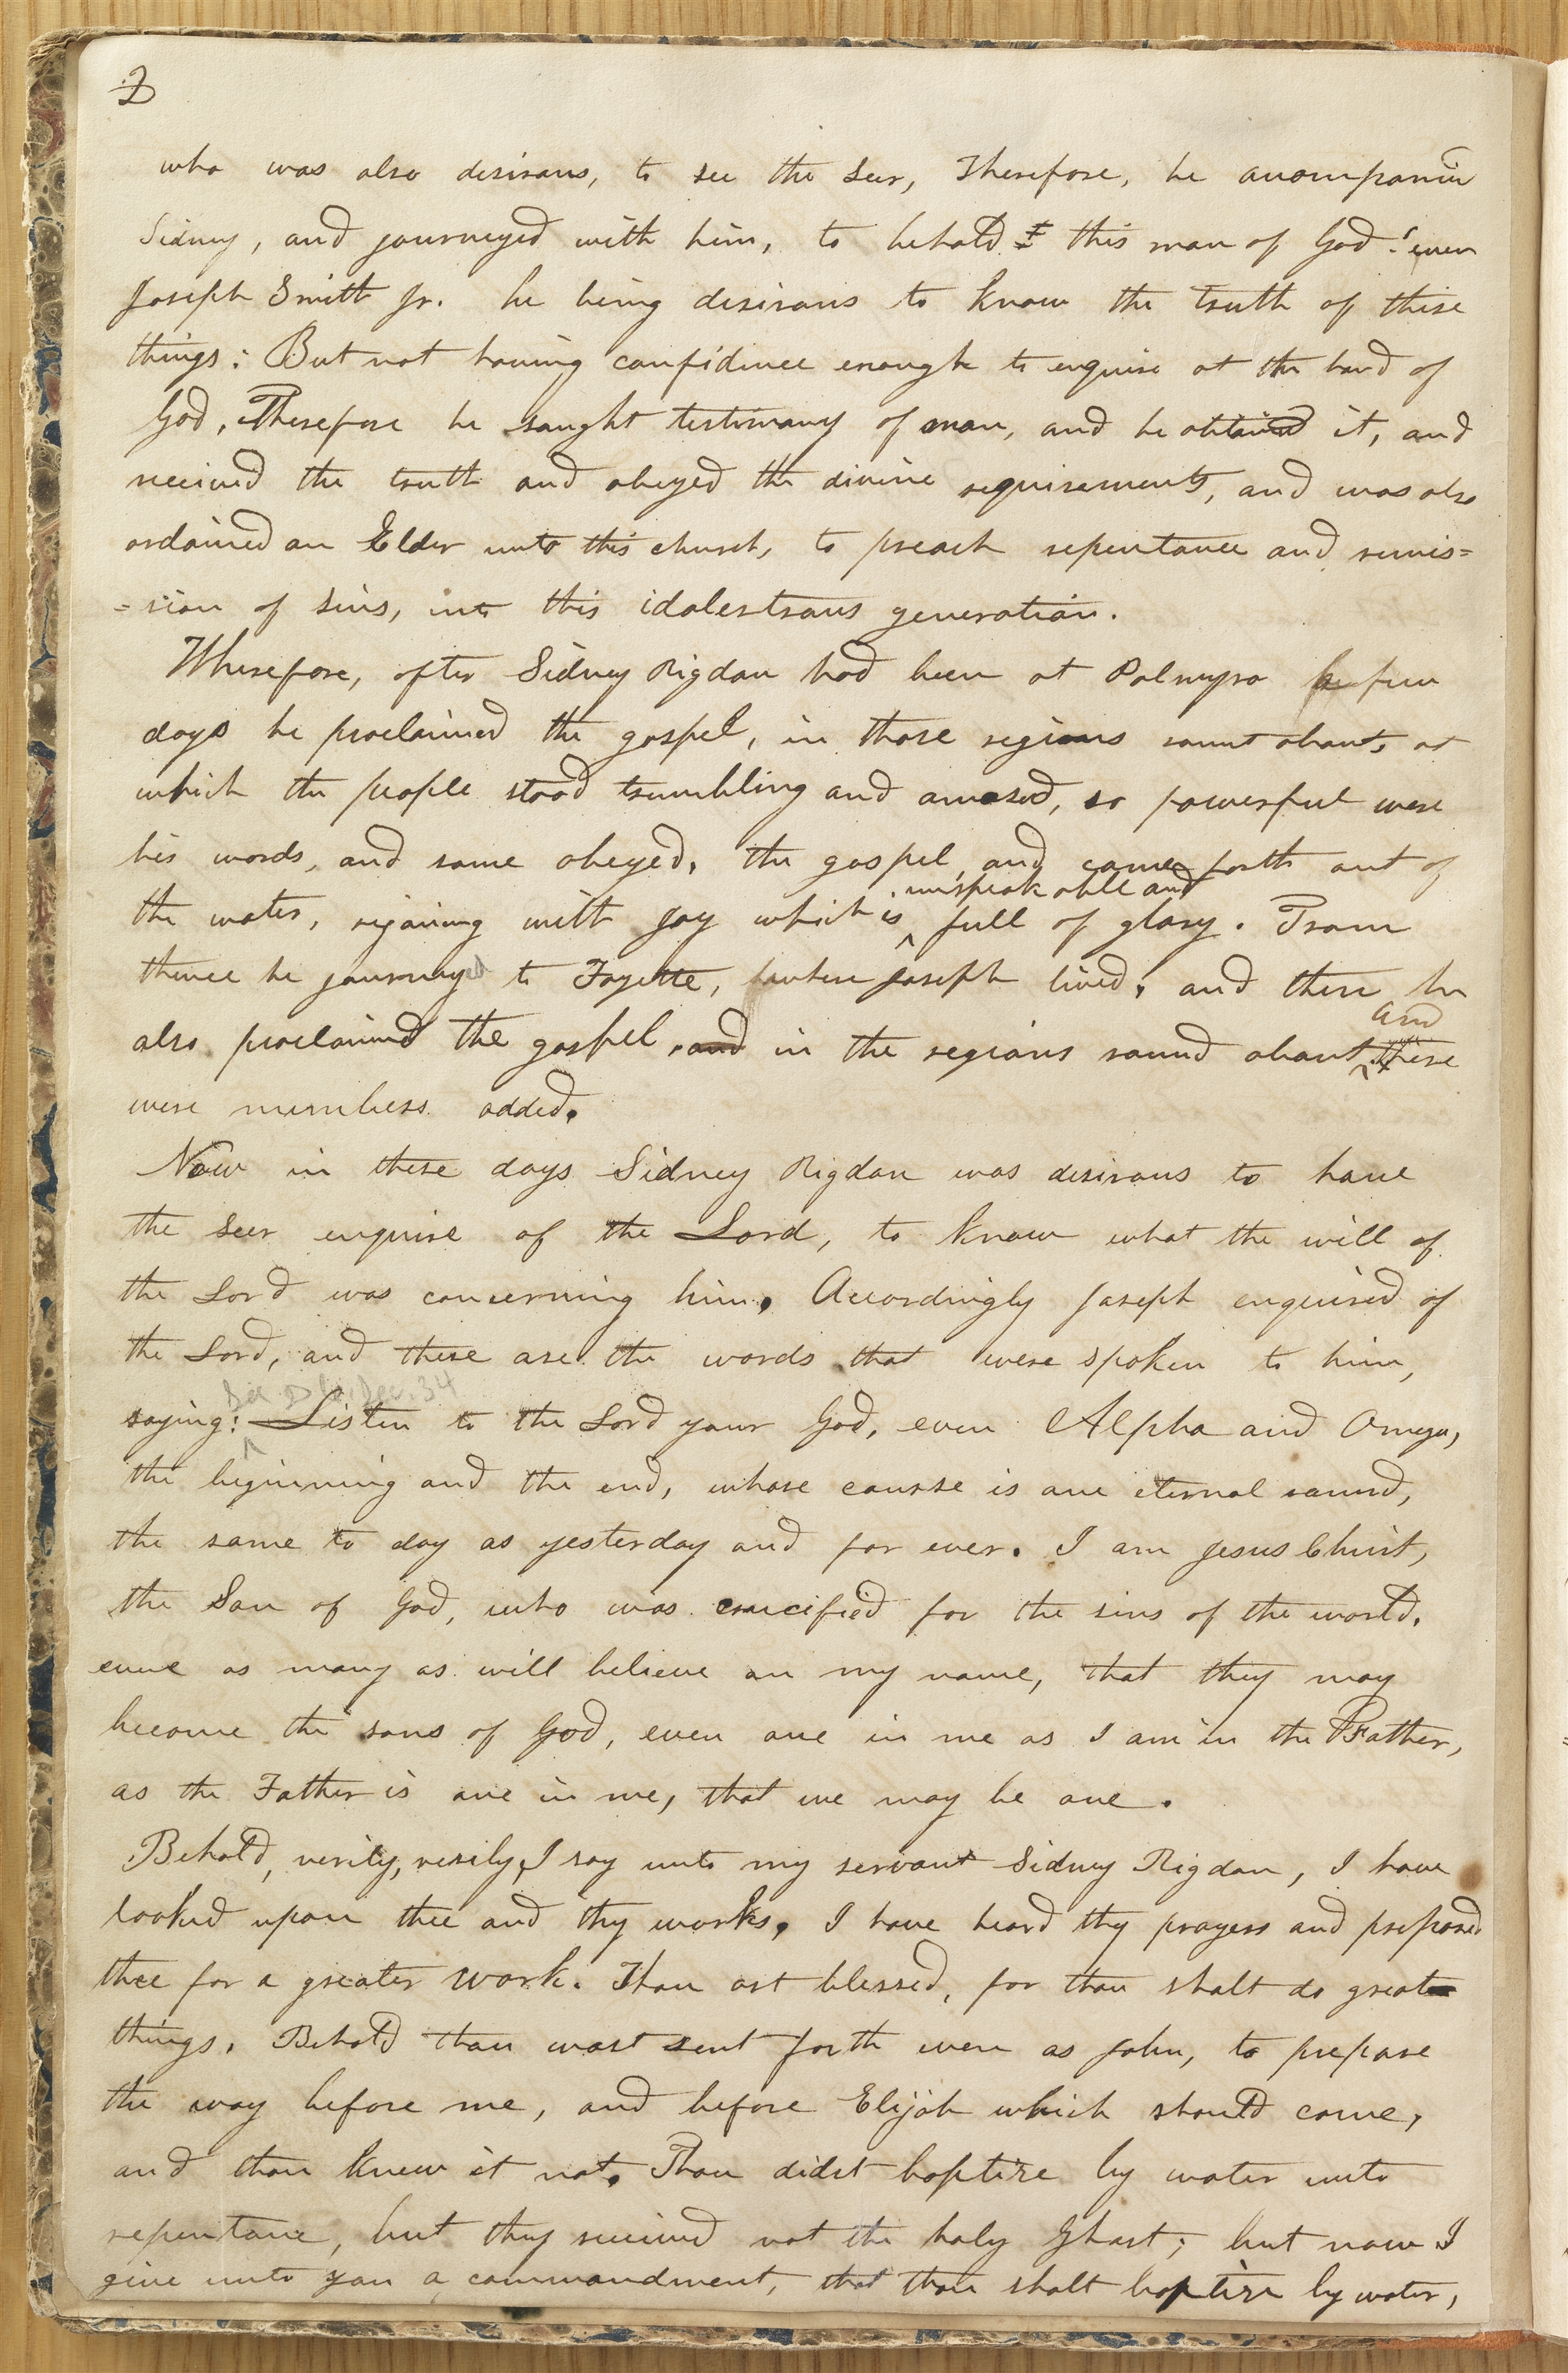 2
who was also desirous, to see the Seer, Therefore, he accompanied
Sidney, and journeyed with him, to behold this man of God: even
Joseph Smith Jr. he being desirous to know the truth of these
things: But not having confidence enough to enquire at the hand of
God, Therefore he saught testimony of man, and he obtained it, and
received the truth and obeyed the divine requirements, and was also
ordained an Elder unto this church, to preach repentance and remis=
=sion of sins, unto this idolestrous generation.
Wherefore, after Sidney Rigdon had been at Palmyra a few
days he proclaimed the gospel, in those regions round about, at
which the people stood trembling and amased, so powerful were
his words, and some obeyed, the gospel, and came forth out of
the water, rejoicing with joy which is unspeakable and full of glory. From
thence he journeyed to Fayette, where Joseph lived, and there he
also proclaimed the gospel, and in the regions round about, and there
were numbers added.
Now in these days Sidney Rigdon was desirous to have
the Seer enquire of the Lord, to know what the will of
the Lord was concerning him, Accordingly Joseph enquired of
the Lord, and these are the words that were spoken to him,
saying: Listen to the Lord your God, even Alpha and Omega,
the beginning and the end, whose course is one eternal round,
the same to day as yesterday and for ever. I am Jesus Christ,
the Son of God, who was crucified for the sins of the world,
even as many as will believe on my name, that they may
become the sons of God, even one in me as I am in the Father,
as the Father is one in me, that we may be one.
Behold, verily, verily, I say unto my servant Sidney Rigdon, I have
looked upon thee and thy works, I have heard thy prayers and prepared
thee for a greater work. Thou art blessed, for thou shalt do great
things. Behold thou wast sent forth even as John, to prepare
the way before me, and before Elijah which should come,
and thou knew it not, Thou didst baptize by water unto
repentance, but they received not the holy Ghost; but now I
give unto you a commandment, that thou shalt baptize by water,